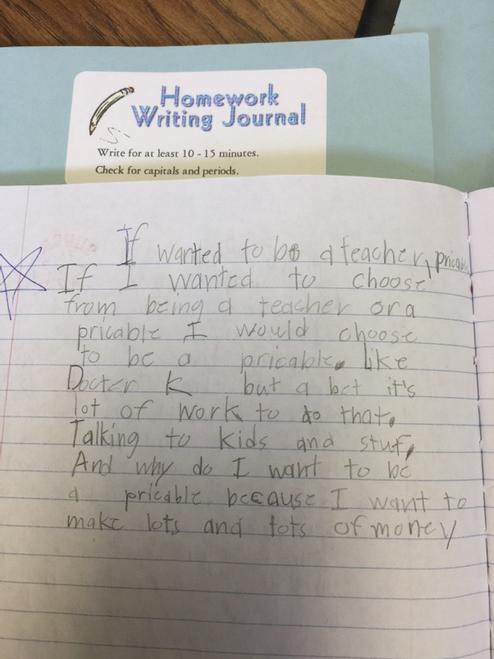 Homework
Writing Journal
Write for at least 10 - 15 minutes.
Check for capitals and periods.
If wanted to be a teacher, pricable
If I wanted to choose
from being a teacher or a
pricable I would choose
to be a pricable. like
Docter K but a bet it's
lot of work to do that.
Talking to kids and stuf,
And why do I want to be
a pricable because I want to
make lots and tots of money